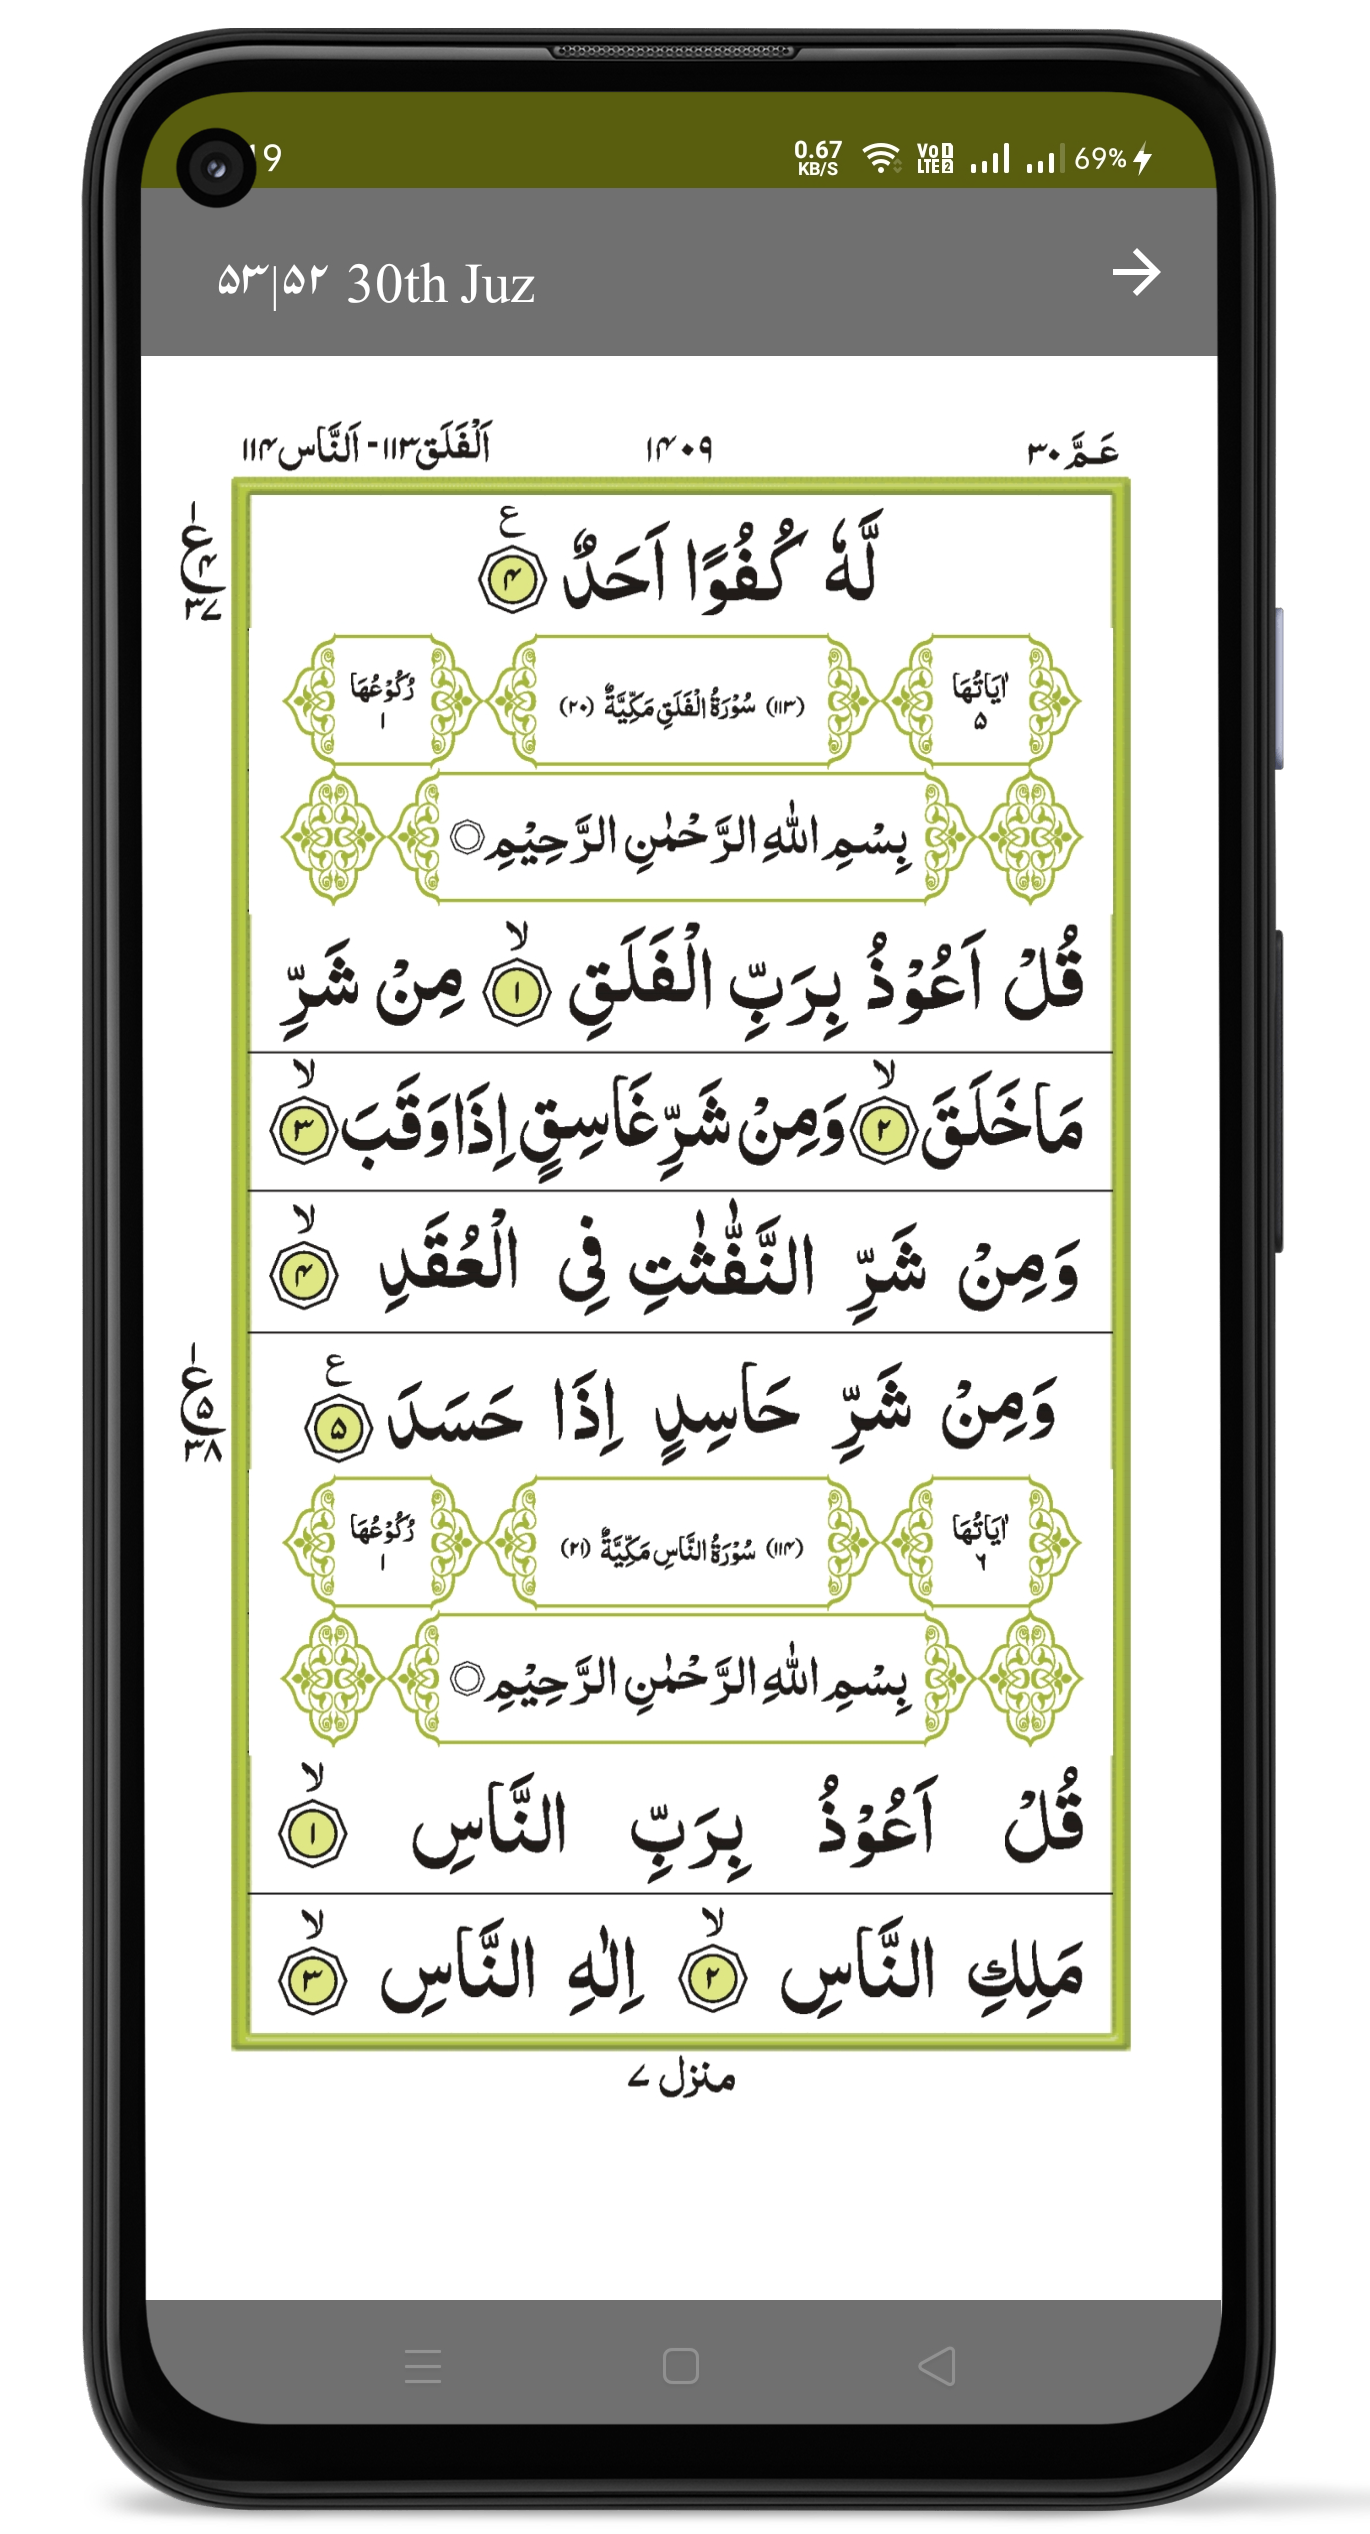 19 0.67 KB/S VoLTE 1 2 69%
۵۳|۵۲ 30th Juz
عَمَّ ۳۰ ۱۴۰۹ اَلْفَلَق ۱۱۳ - اَلنَّاس ۱۱۴
لَّهٗ كُفُوًا اَحَدٌ ۴ ع
ع ۱ ۴ ۳۷
اٰيَاتُهَا ۵ (۱۱۳) سُوْرَةُ الْفَلَقِ مَكِّيَّةٌ (۲۰) رُكُوْعُهَا ۱
بِسْمِ اللّٰهِ الرَّحْمٰنِ الرَّحِيْمِ
قُلْ اَعُوْذُ بِرَبِّ الْفَلَقِ ۱ لا مِنْ شَرِّ
مَا خَلَقَ ۲ لا وَمِنْ شَرِّ غَاسِقٍ اِذَا وَقَبَ ۳ لا
وَمِنْ شَرِّ النَّفّٰثٰتِ فِى الْعُقَدِ ۴ لا
وَمِنْ شَرِّ حَاسِدٍ اِذَا حَسَدَ ۵ ع
ع ۱ ۵ ۳۸
اٰيَاتُهَا ۶ (۱۱۴) سُوْرَةُ النَّاسِ مَكِّيَّةٌ (۲۱) رُكُوْعُهَا ۱
بِسْمِ اللّٰهِ الرَّحْمٰنِ الرَّحِيْمِ
قُلْ اَعُوْذُ بِرَبِّ النَّاسِ ۱ لا
مَلِكِ النَّاسِ ۲ لا اِلٰهِ النَّاسِ ۳ لا
منزل ۷